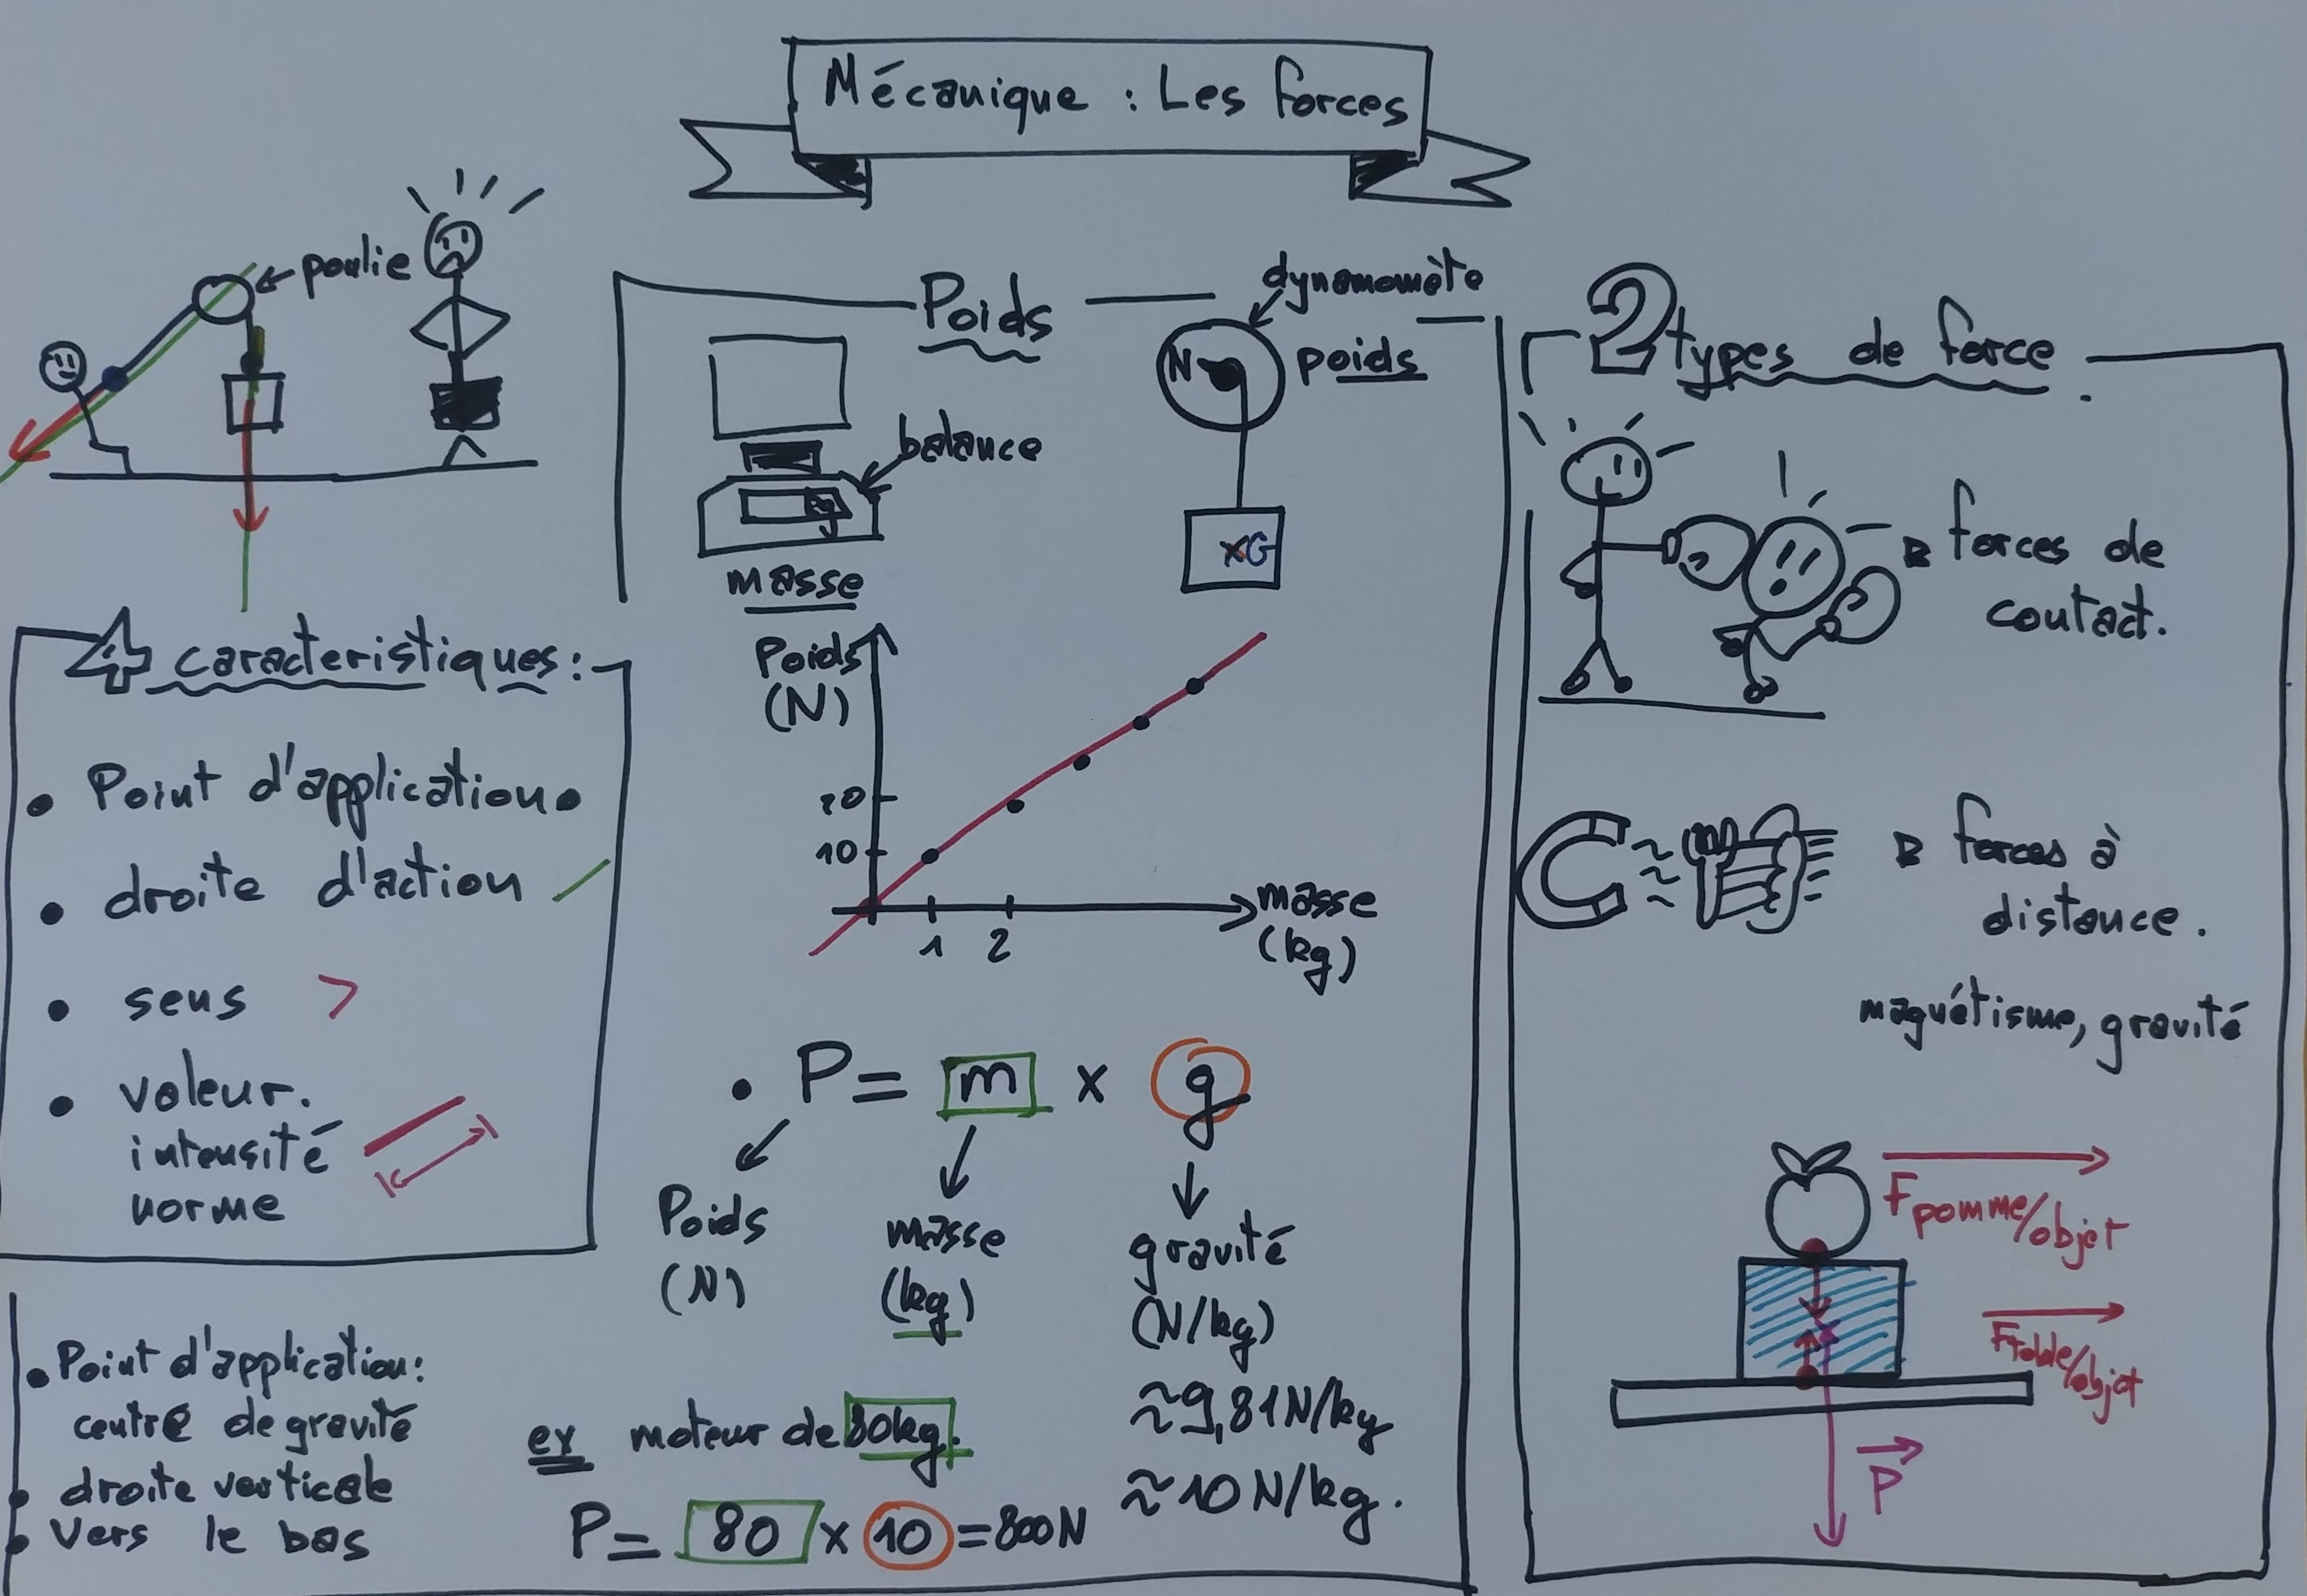 Mécanique : Les forces
poulie
4 caracteristiques :
• Point d'application •
• droite d'action
• sens >
• valeur.
intensité
norme
• Point d'application :
centre de gravité
• droite verticale
• vers le bas
Poids
dynamomète
N
poids
balance
kg
masse
xG
Poids
(N)
20
10
1
2
masse
(kg)
• P = m x g
Poids
(N)
masse
(kg)
gravité
(N/kg)
≈ 9,81 N/kg
≈ 10 N/kg.
ex moteur de 80kg.
P = 80 x 10 = 800 N
2 types de force.
forces de
contact.
forces à
distance.
magnétisme, gravité
F pomme/objet
F table/objet
P